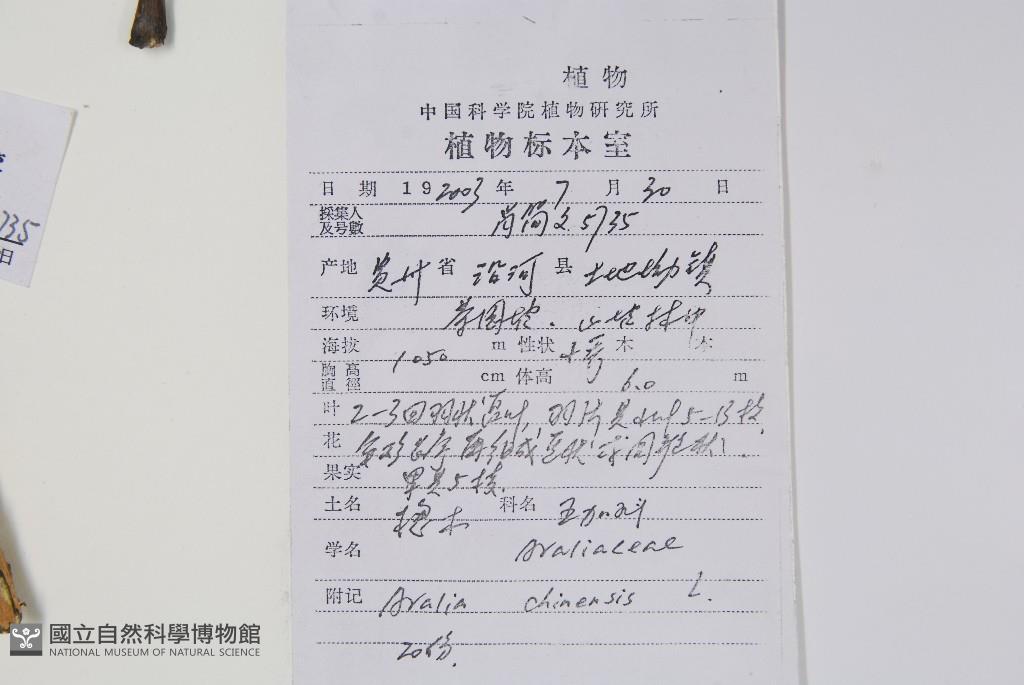 植物
中国科学院植物研究所
植物标本室
日 期 19 2003 年 7 月 30 日
採集人
及号數 肖简文 5735
产地 贵州 省 沿河 县 土地坳镇
环境 山坡林中
海拔 1050 m 性状 小乔 木 本
胸高
直徑 cm 体高 6.0 m
叶 2-3回羽状复叶, 羽片具小叶5-13枚
花 伞形花序再组成
果实 果具5棱.
土名 楤木 科名 五加科
学名 Araliaceae
附记 Aralia chinensis L.
20份.
735
日
國立自然科學博物館
NATIONAL MUSEUM OF NATURAL SCIENCE